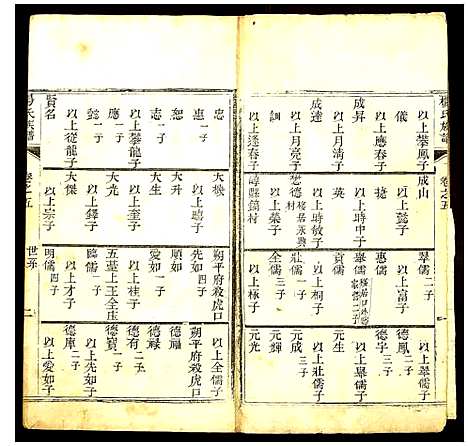 楊氏族譜
卷之五
一
以上攀鳳子
儀
以上應春子
成昇
以上月淸子
成達
以上月亮子
以上逢春子
成山
以上懿子
㨗
以上時中子
英
以上時敏子
以上榮子
翠儒 二子
以上富子
惠儒
舉儒
以上貞儒
以上桐子
壯儒 一子
全儒 三子
以上㭘子
德鳳 二子
德宇 三子
以上舉儒子
元生
以上壯儒子
元成 三子
元輝
元光
忠
惠 一子
恕
志 一子
以上攀龍子
應 一子
懿 一子
以上從龍子
賢名
以上聰子
大升
大生
以上奎子
大光
以上鐸子
大傑
以上宗子
朔平府殺虎口
先如 四子
順如
愛如 一子
以上桂子
五臺上王全庄
臨儒 二子
以上才子
明儒 四子
以上全儒子
朔平府殺虎口
德福
德祿
德有 二子
德寶 一子
以上先如子
德庫 二子
以上愛如子
楊氏族譜
卷之五
世系
二